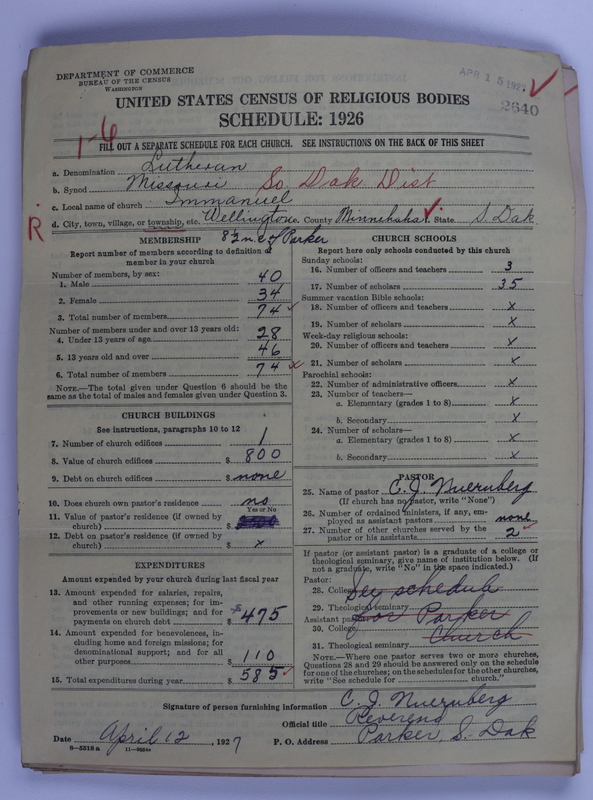 DEPARTMENT OF COMMERCE
BUREAU OF THE CENSUS
WASHINGTON
APR 15 1927
2640
UNITED STATES CENSUS OF RELIGIOUS BODIES
SCHEDULE: 1926
1-6
FILL OUT A SEPARATE SCHEDULE FOR EACH CHURCH. SEE INSTRUCTIONS ON THE BACK OF THIS SHEET
a. Denomination Lutheran
b. Synod Missouri So Dak Dist
c. Local name of church Immanuel
R d. City, town, village, or township, etc. Wellington County Minnehaha State S. Dak
8½ n.e. of Parker
MEMBERSHIP
Report number of members according to definition of member in your church
Number of members, by sex:
1. Male 40
2. Female 34
3. Total number of members 74
Number of members under and over 13 years old:
4. Under 13 years of age 28
5. 13 years old and over 46
6. Total number of members 74
NOTE.—The total given under Question 6 should be the
same as the total of males and females given under Question 3.
CHURCH BUILDINGS
See instructions, paragraphs 10 to 12
7. Number of church edifices 1
8. Value of church edifices $ 800
9. Debt on church edifices $ none
10. Does church own pastor's residence no
Yes or No
11. Value of pastor's residence (if owned by
church) $
12. Debt on pastor's residence (if owned by
church) $ x
EXPENDITURES
Amount expended by your church during last fiscal year
13. Amount expended for salaries, repairs,
and other running expenses; for im-
provements or new buildings; and for
payments on church debt $ 475
14. Amount expended for benevolences, in-
cluding home and foreign missions; for
denominational support; and for all
other purposes $ 110
15. Total expenditures during year $ 585
CHURCH SCHOOLS
Report here only schools conducted by this church
Sunday schools:
16. Number of officers and teachers 3
17. Number of scholars 35
Summer vacation Bible schools:
18. Number of officers and teachers x
19. Number of scholars x
Week-day religious schools:
20. Number of officers and teachers x
21. Number of scholars x
Parochial schools:
22. Number of administrative officers x
23. Number of teachers—
a. Elementary (grades 1 to 8) x
b. Secondary x
24. Number of scholars—
a. Elementary (grades 1 to 8) x
b. Secondary x
PASTOR
25. Name of pastor C. J. Nuernberg
(If church has no pastor, write "None")
26. Number of ordained ministers, if any, em-
ployed as assistant pastors none
27. Number of other churches served by the
pastor or his assistants 2
If pastor (or assistant pastor) is a graduate of a college or
theological seminary, give name of institution below. (If
not a graduate, write "No" in the space indicated.)
Pastor:
28. College See schedule
29. Theological seminary
Assistant pastor: for Parker
30. College
Church
31. Theological seminary
NOTE.—Where one pastor serves two or more churches,
Questions 28 and 29 should be answered only on the schedule
for one of the churches; on the schedules for the other churches,
write "See schedule for ........ church."
Signature of person furnishing information C. J. Nuernberg
Official title Reverend
Date April 12, 1927 P. O. Address Parker, S. Dak